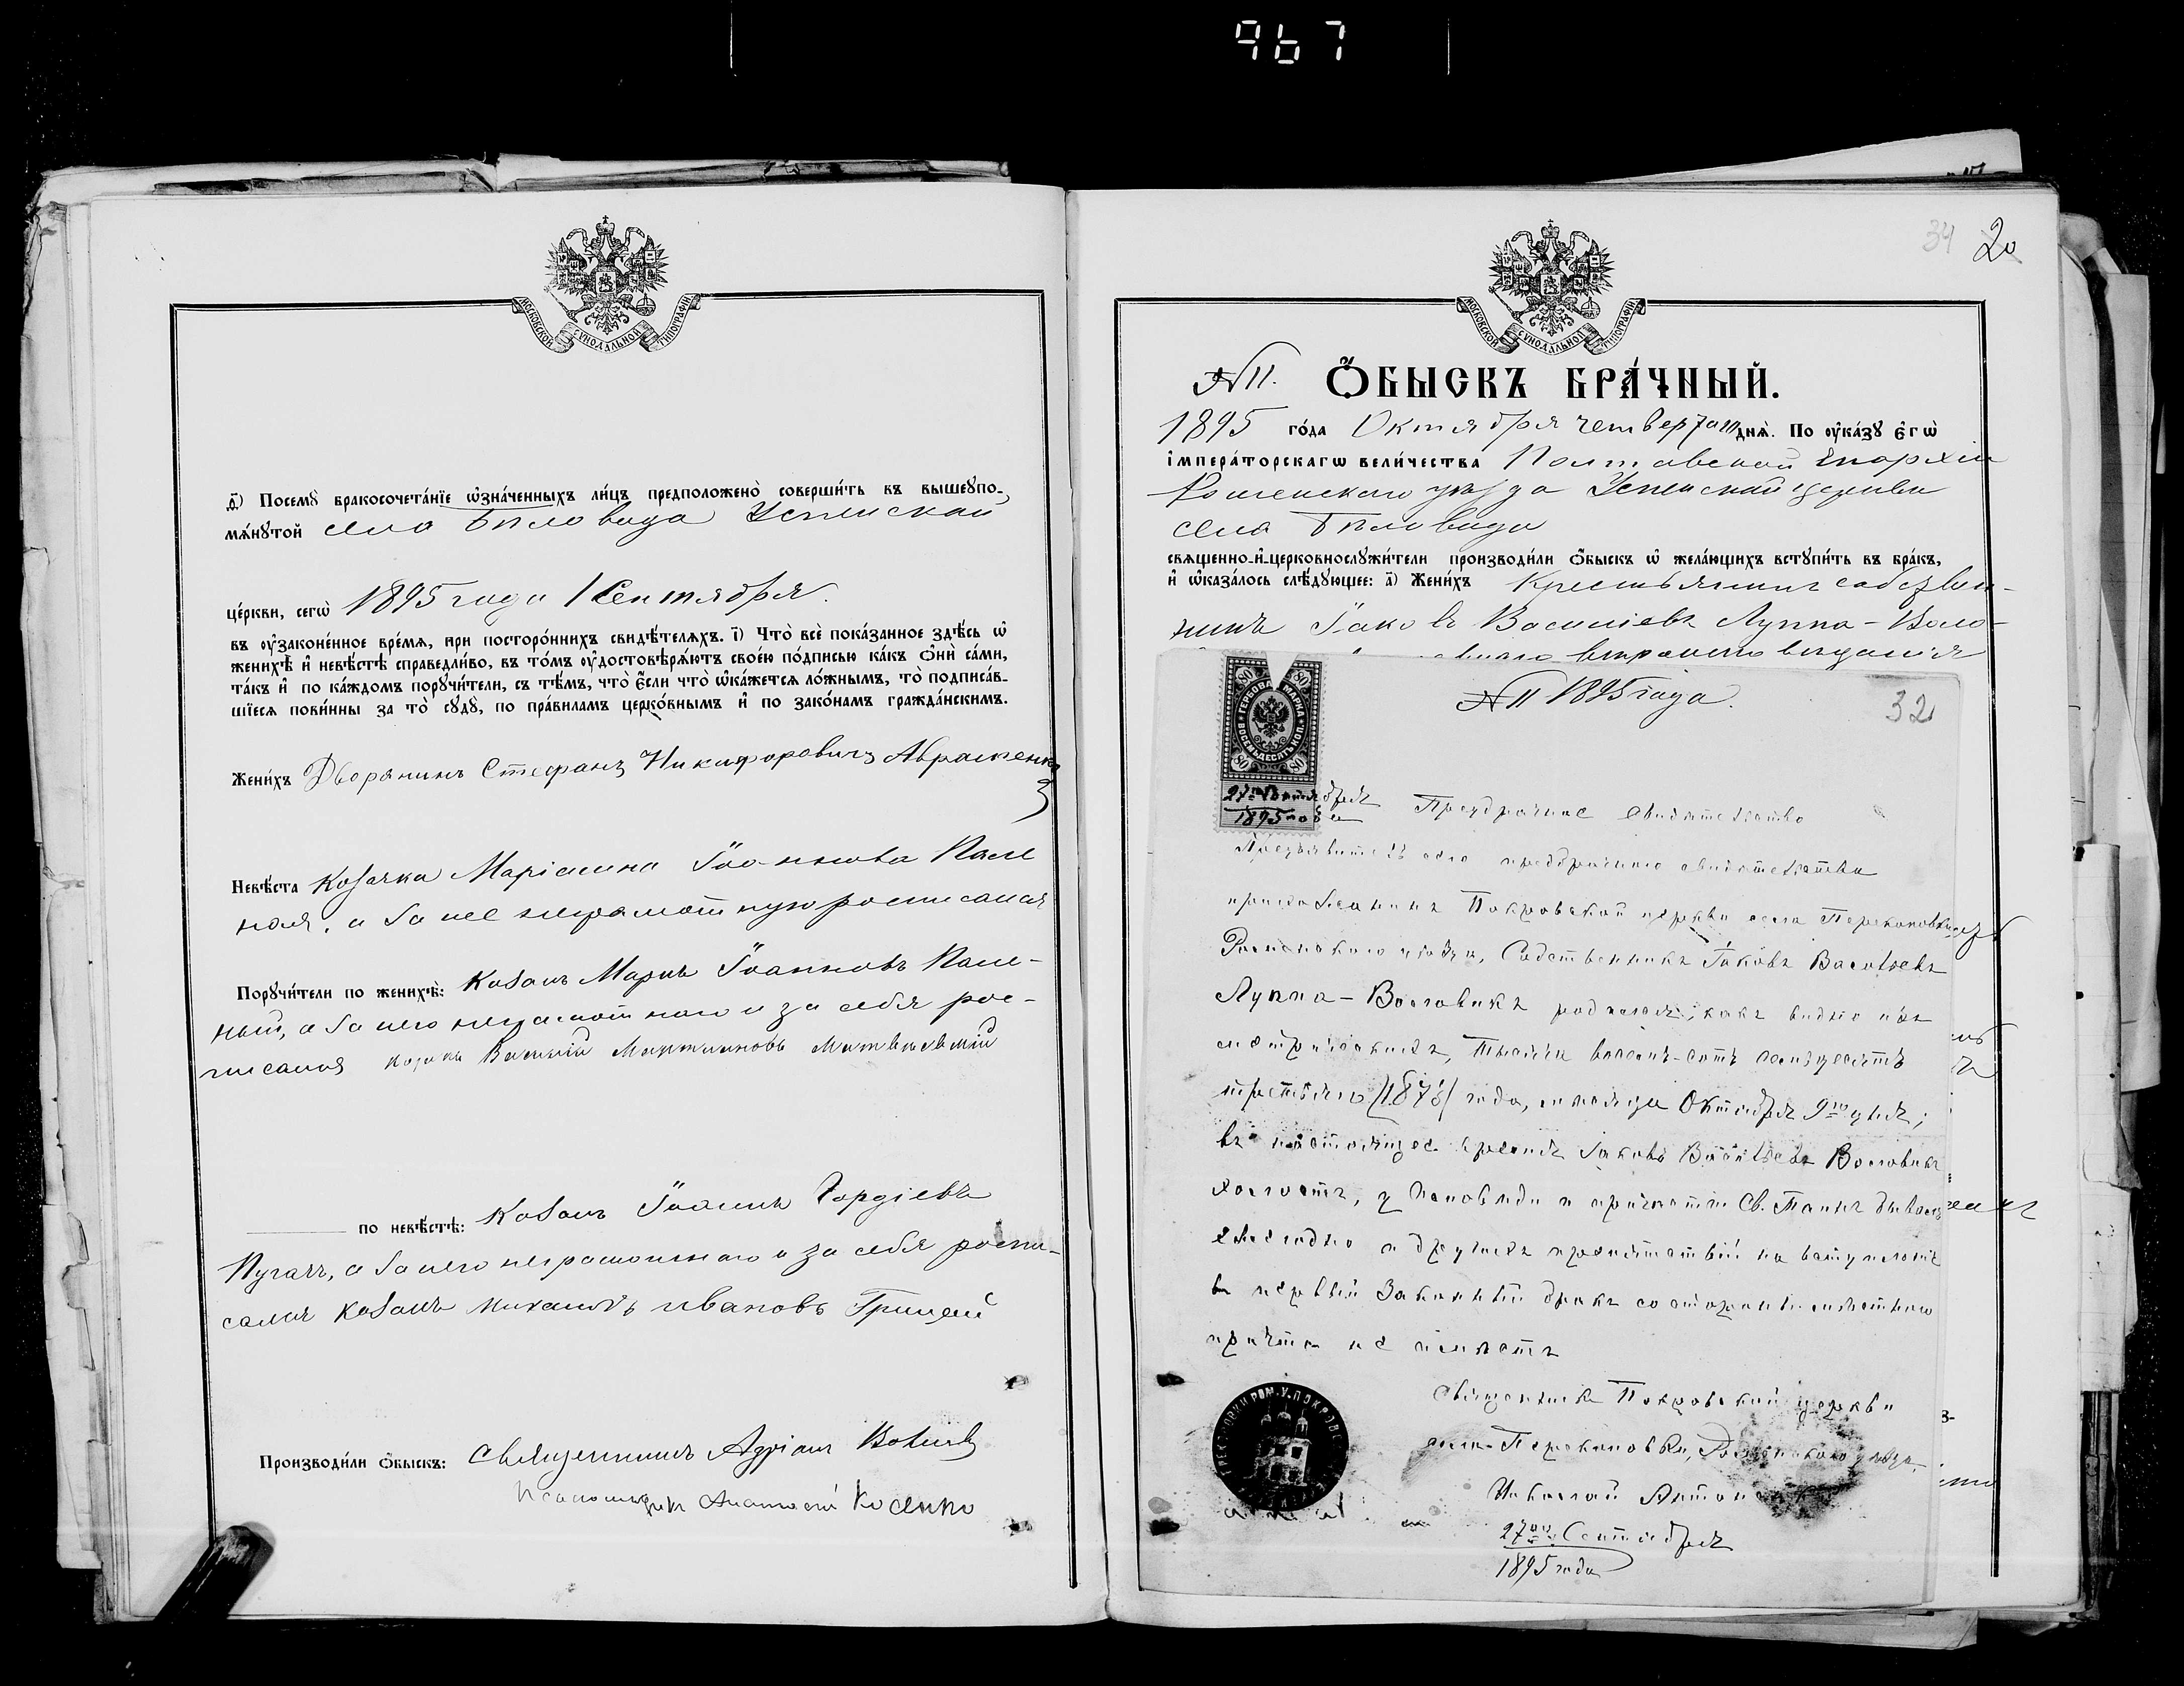 967
МОСКОВСКОЙ СѴНОДАЛЬНОЙ ТИПОГРАФІИ
ѳ҃) Посемꙋ̀ бракосочета́нїе ѡ҆зна́ченныхъ ли́цъ предположено̀ соверши́ть въ вышеꙋпо-
мѧ́нꙋтой село Бѣловода Успенской
це́ркви, сегѡ̀ 1895 года 1 Сентября.
въ ᲂу҆зако́ненное вре́мѧ, при посторо́ннихъ свидѣ́телѧхъ. і҃) Что̀ всѐ пока́занное здѣ́сь ѡ҆
женихѣ̀ и҆ невѣ́стѣ справедли́во, въ то́мъ ᲂу҆достовѣрѧ́ютъ свое́ю по́дписью ка́къ ѻ҆нѝ са́ми,
та́къ и҆ по ка́ждомъ порꙋчи́тели, съ тѣ́мъ, что̀ є҆́сли что̀ ѡ҆ка́жетсѧ ло́жнымъ, то̀ подписа́в-
шїесѧ пови́нны за то̀ сꙋдꙋ̀, по пра́виламъ церко́внымъ и҆ по зако́намъ гражда́нскимъ.
Жени́хъ Дворянинъ Стефанъ Никифоровичъ Авраменко
Невѣ́ста Козачка Маріамна Іоаннова Пале
ная, а за нее неграмотную росписался
Порꙋчи́тели по женихѣ̀: Козакъ Маркъ Іоанновъ Пале-
ный, а за него неграмотнаго и за себя рос-
писался козакъ Василій Мартиновъ
по невѣ́стѣ: Козакъ Іоаннъ Гордіевъ
Пугачъ, а за него неграмотнаго и за себя роспи-
сался козакъ Михаилъ Ивановъ Грицай
Производи́ли ѻ҆́быскъ: Священникъ Адріанъ
Псаломщикъ Анатолій Косенко
34 20
МОСКОВСКОЙ СѴНОДАЛЬНОЙ ТИПОГРАФІИ
№ 11. Ѻ҆́БЫСКЪ БРА́ЧНЫЙ.
1895 го́да Октября четвертаго днѧ̀. По ᲂу҆ка́зꙋ є҆гѡ̀
і҆мпера́торскагѡ вели́чества Полтавской Епархіи
Роменскаго уѣзда Успенской церкви
села Бѣловода
свѧще́нно-и҆-церковнослꙋжи́тели производи́ли ѻ҆́быскъ ѡ҆ жела́ющихъ встꙋпи́ть въ бра́къ,
и҆ ѡ҆каза́лось слѣ́дꙋющее: а҃) Жени́хъ Крестьянинъ собствен-
никъ Іаковъ Васильевъ Луппа-Воло-
№ 11 1895 года.
32
80 80
ГЕРБОВАЯ МАРКА ВОСЕМЬДЕСЯТЪ КОП.
80 80
27го Сентября
1895 года
Предбрачное свидѣтельство
Предъявитель сего предбрачнаго свидѣтельства
прихожанинъ Покровской церкви села Перекоповки
Роменскаго уѣзда, Собственникъ Іаковъ Васильевъ
Луппа-Воловикъ родился, какъ видно изъ
метрическихъ, тысяча восемь-сотъ семьдесятъ
третьяго /1873/ года, мѣсяца Октября 9го дня;
въ настоящее время Іаковъ Васильевъ Воловикъ
холостъ, у Исповѣди и причастія Св. Таинъ бываетъ
ежегодно и другихъ препятствій на вступленіе
въ первый законный бракъ со стороны мѣстнаго
причта не имѣетъ
Священникъ Покровской церкви
села Перекоповки, Роменскаго уѣзда,
Николай
27го Сентября
1895 года